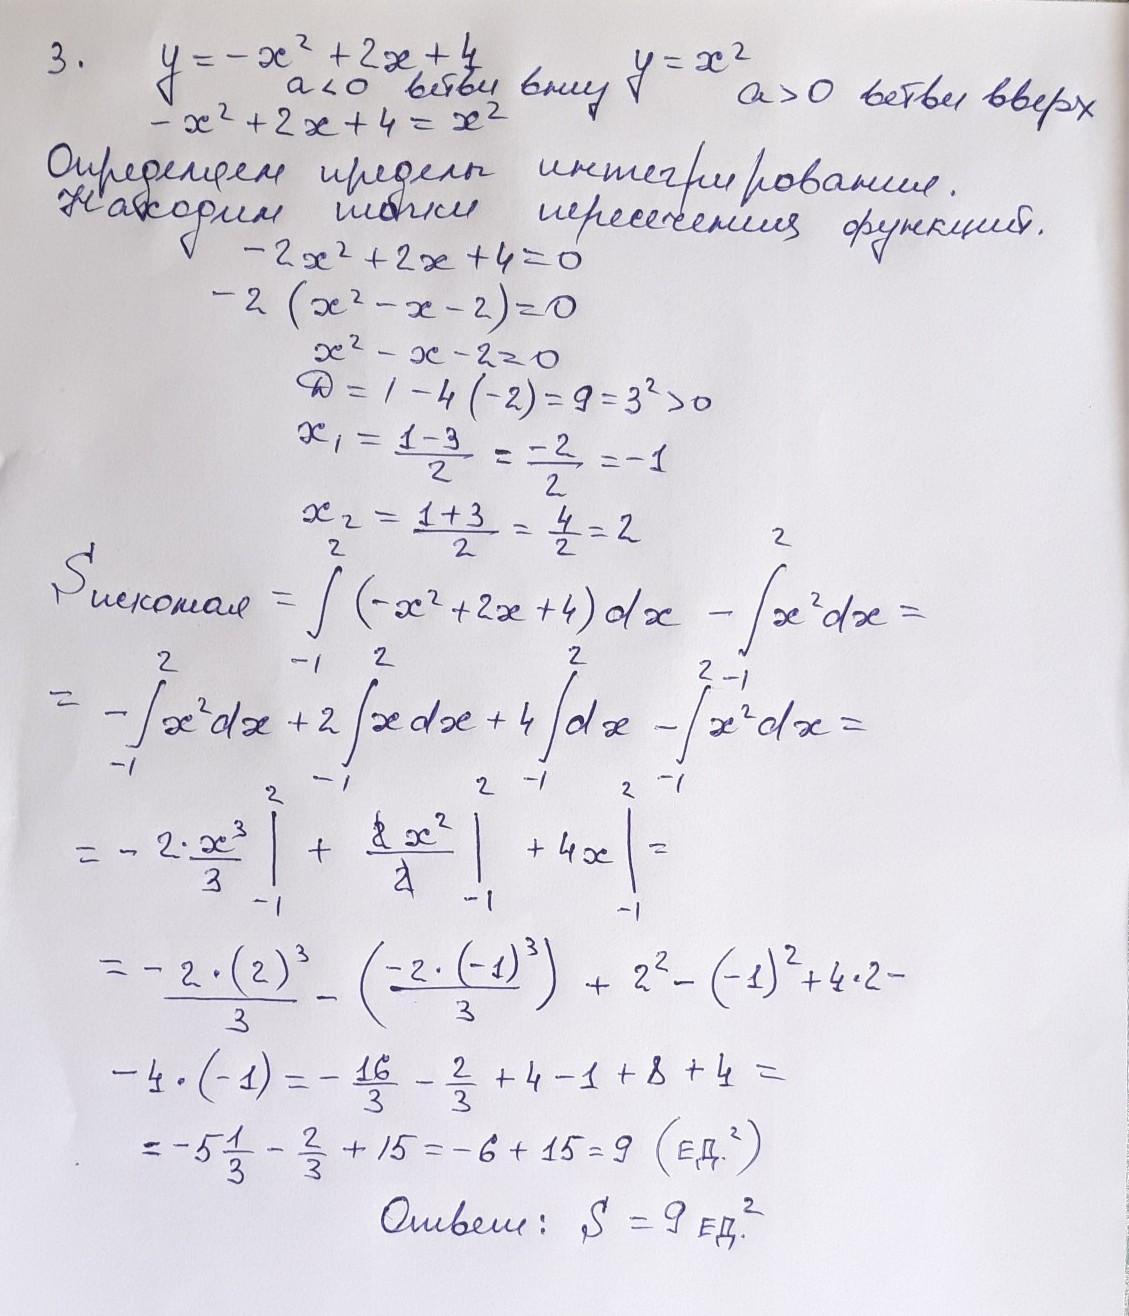 3. y = -x² + 2x + 4 y = x²
a<0 ветви вниз a>0 ветви вверх
-x² + 2x + 4 = x²
Определяем пределы интегрирования.
Находим точки пересечения функций.
-2x² + 2x + 4 = 0
-2 (x² - x - 2) = 0
x² - x - 2 = 0
D = 1 - 4(-2) = 9 = 3² > 0
x₁ = (1-3)/2 = -2/2 = -1
x₂ = (1+3)/2 = 4/2 = 2
Sискомая = ∫₋₁² (-x² + 2x + 4) dx - ∫₋₁² x² dx =
= - ∫₋₁² x² dx + 2 ∫₋₁² x dx + 4 ∫₋₁² dx - ∫₋₁² x² dx =
= - 2·x³/3 |₋₁² + 2x²/2 |₋₁² + 4x |₋₁² =
= - 2·(2)³/3 - (-2·(-1)³/3) + 2² - (-1)² + 4·2 -
- 4·(-1) = - 16/3 - 2/3 + 4 - 1 + 8 + 4 =
= -5 1/3 - 2/3 + 15 = -6 + 15 = 9 (ЕД.²)
Ответ: S = 9 ЕД.²